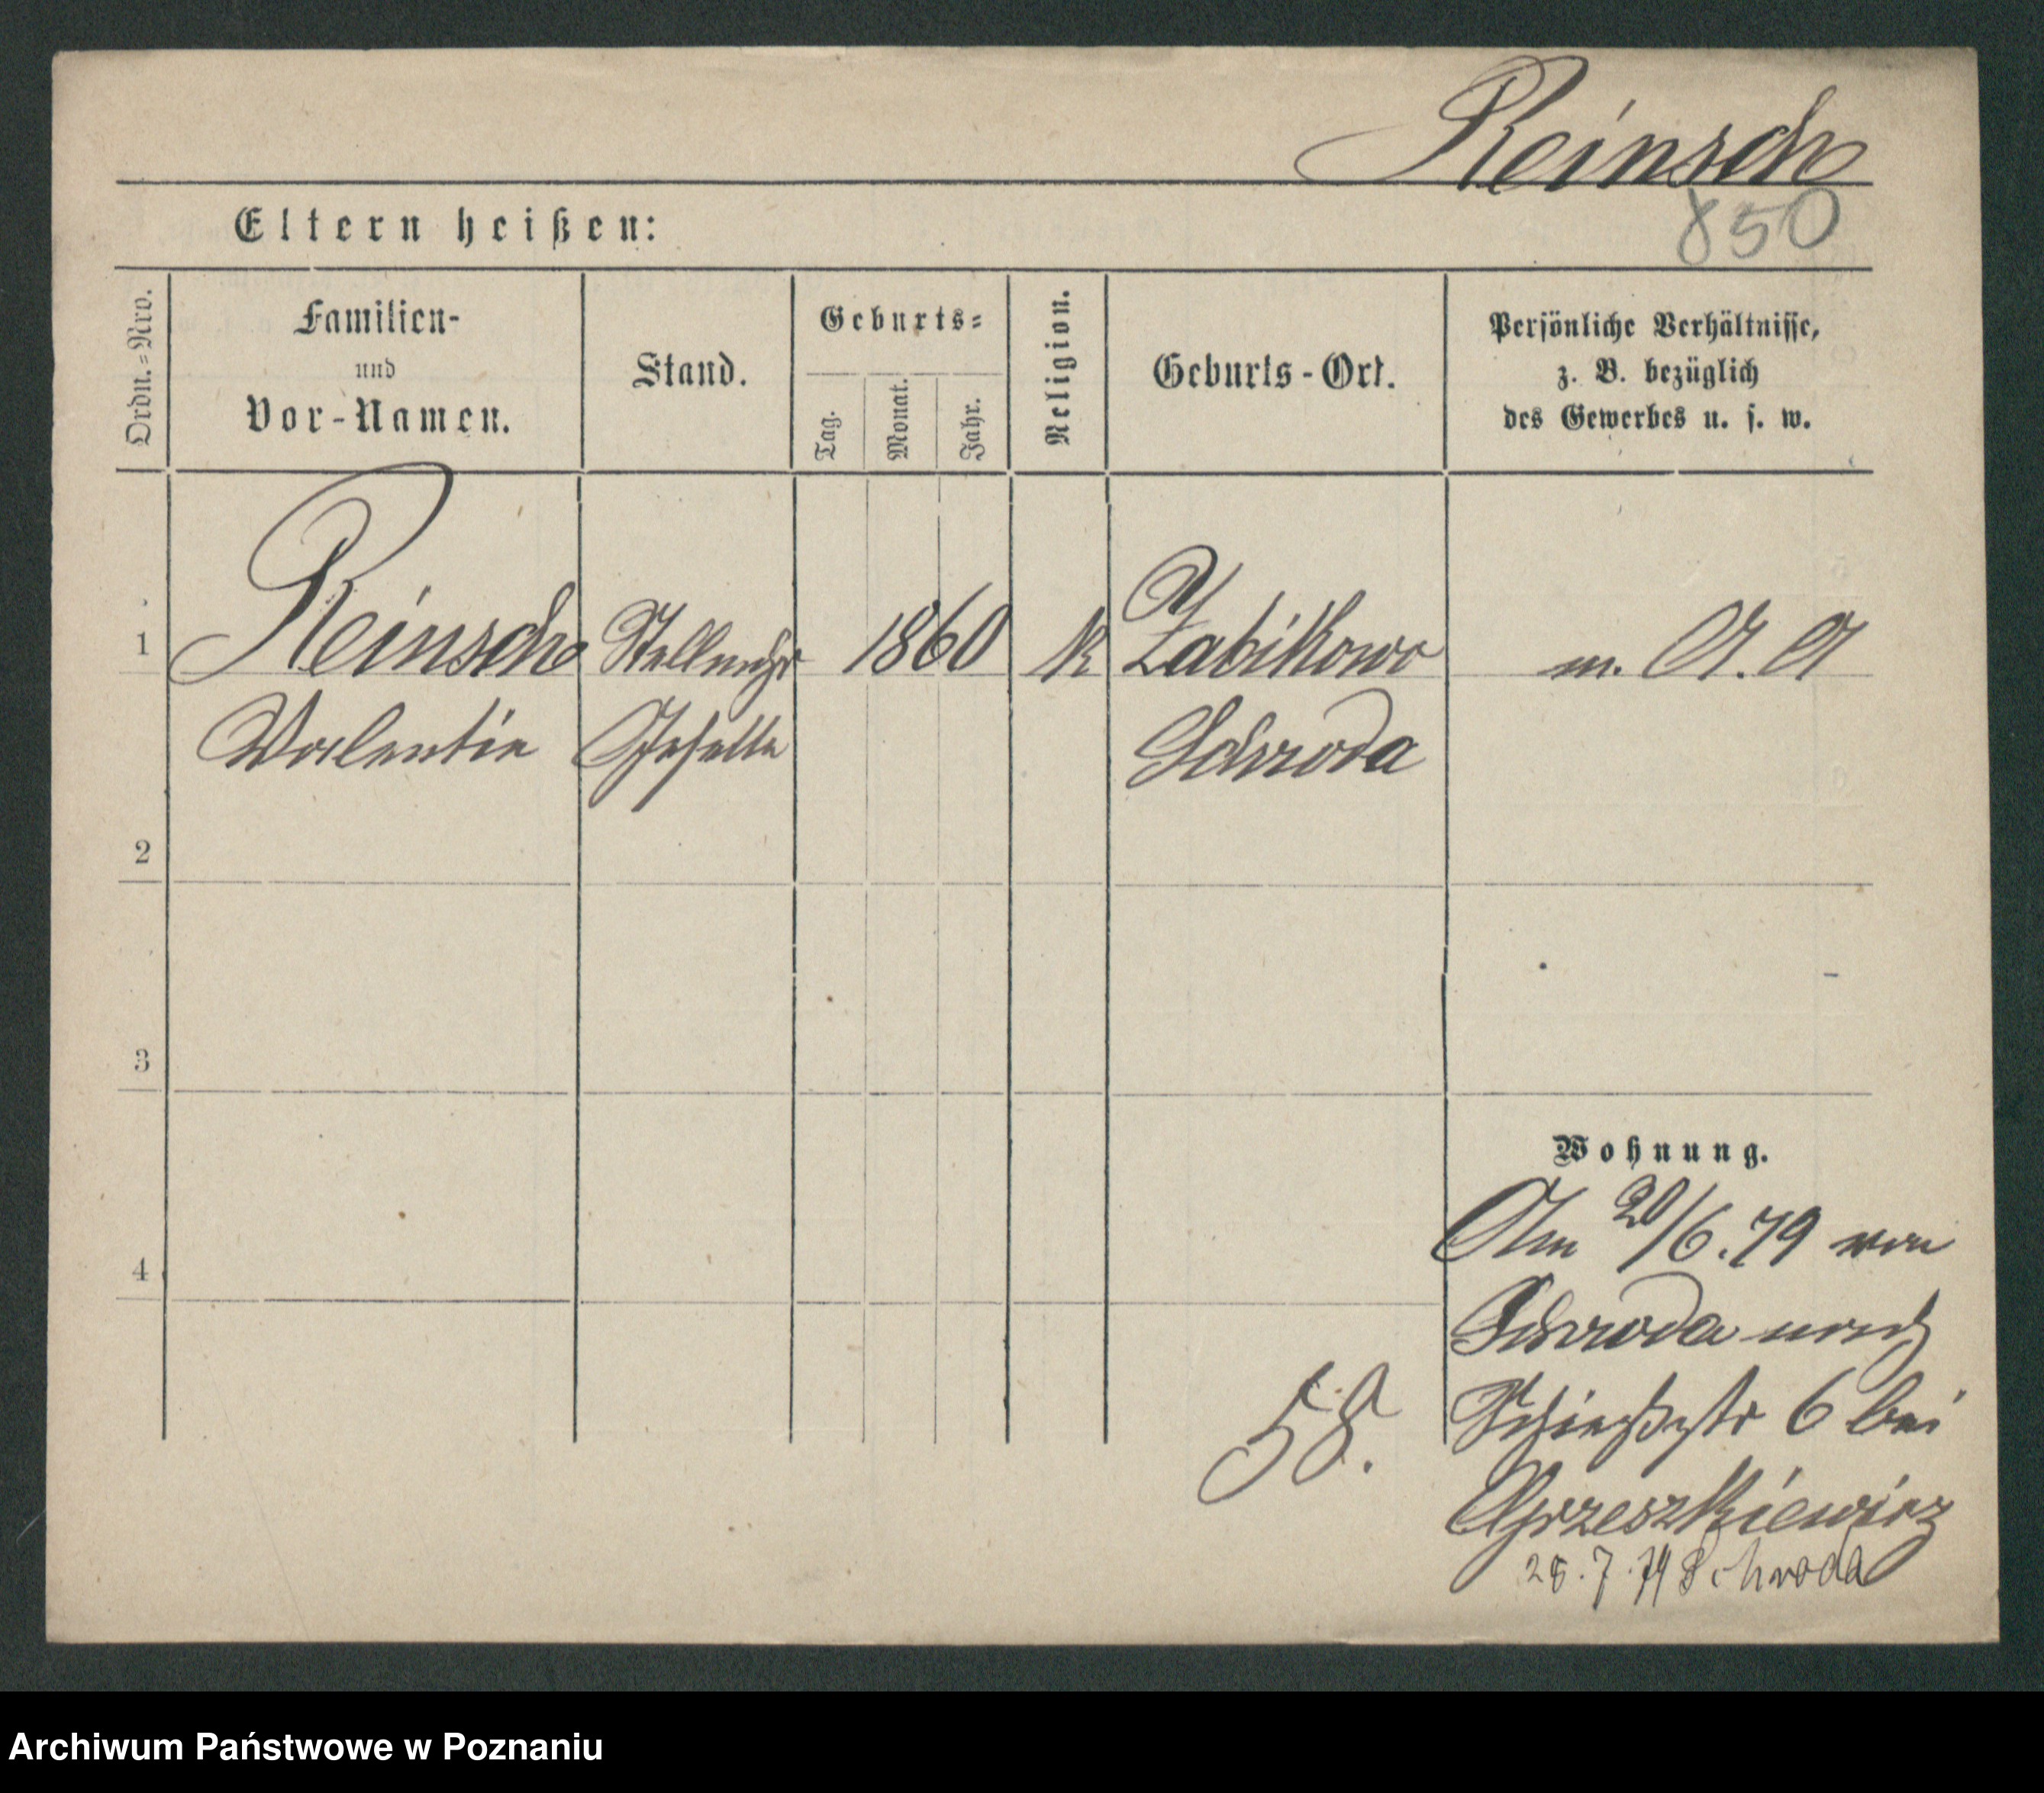 Reinsch
850
Eltern heißen:
Ordn.=Nro.
Familien-
und
Vor-Namen.
Stand.
Geburts=
Tag.
Monat.
Jahr.
Religion.
Geburts-Ort.
Persönliche Verhältnisse,
z. B. bezüglich
des Gewerbes u. s. w.
1
Reinsch
Stellmchr
1860
K
Zabikowo
m. A. A
Valentin
Geselle
Schroda
2
3
4
Wohnung.
Am 20/6.79 von
Schroda nach
Schießstr 6 bei
Grzeszkiewicz
58.
28.7.79 Schroda
Archiwum Państwowe w Poznaniu